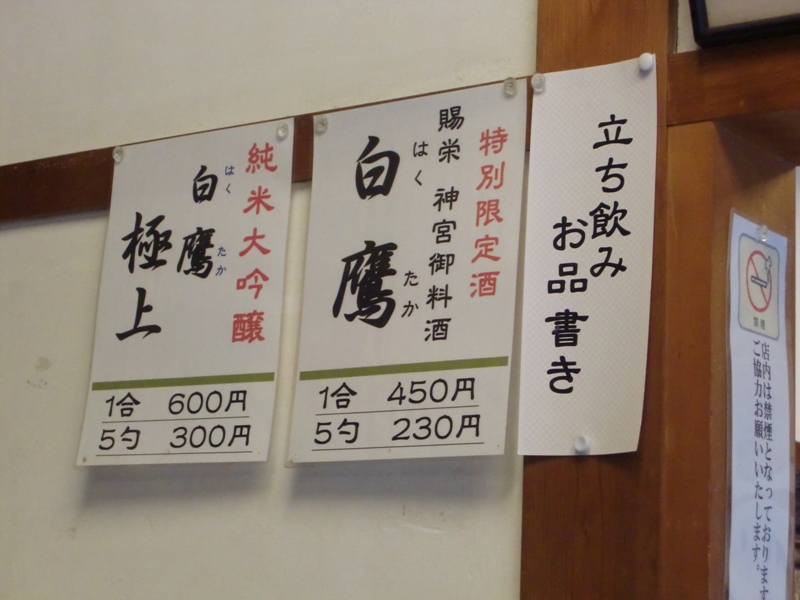 立ち飲み
お品書き
特別限定酒
賜栄 神宮御料酒
白鷹
はくたか
1合 450円
5勺 230円
純米大吟醸
白鷹
はくたか
極上
1合 600円
5勺 300円
禁煙
店内は禁煙となっております
ご協力お願いいたします。